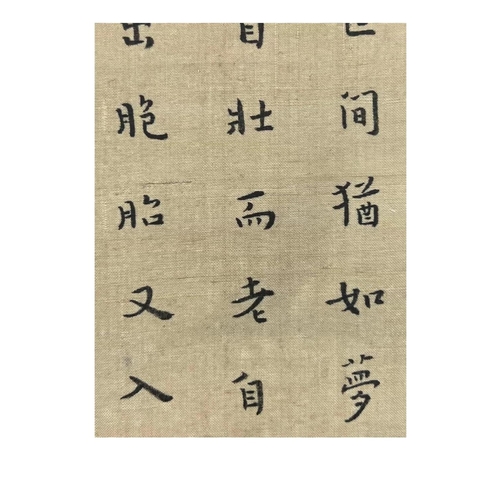 世間猶如夢
自壯而老自
出胞胎又入